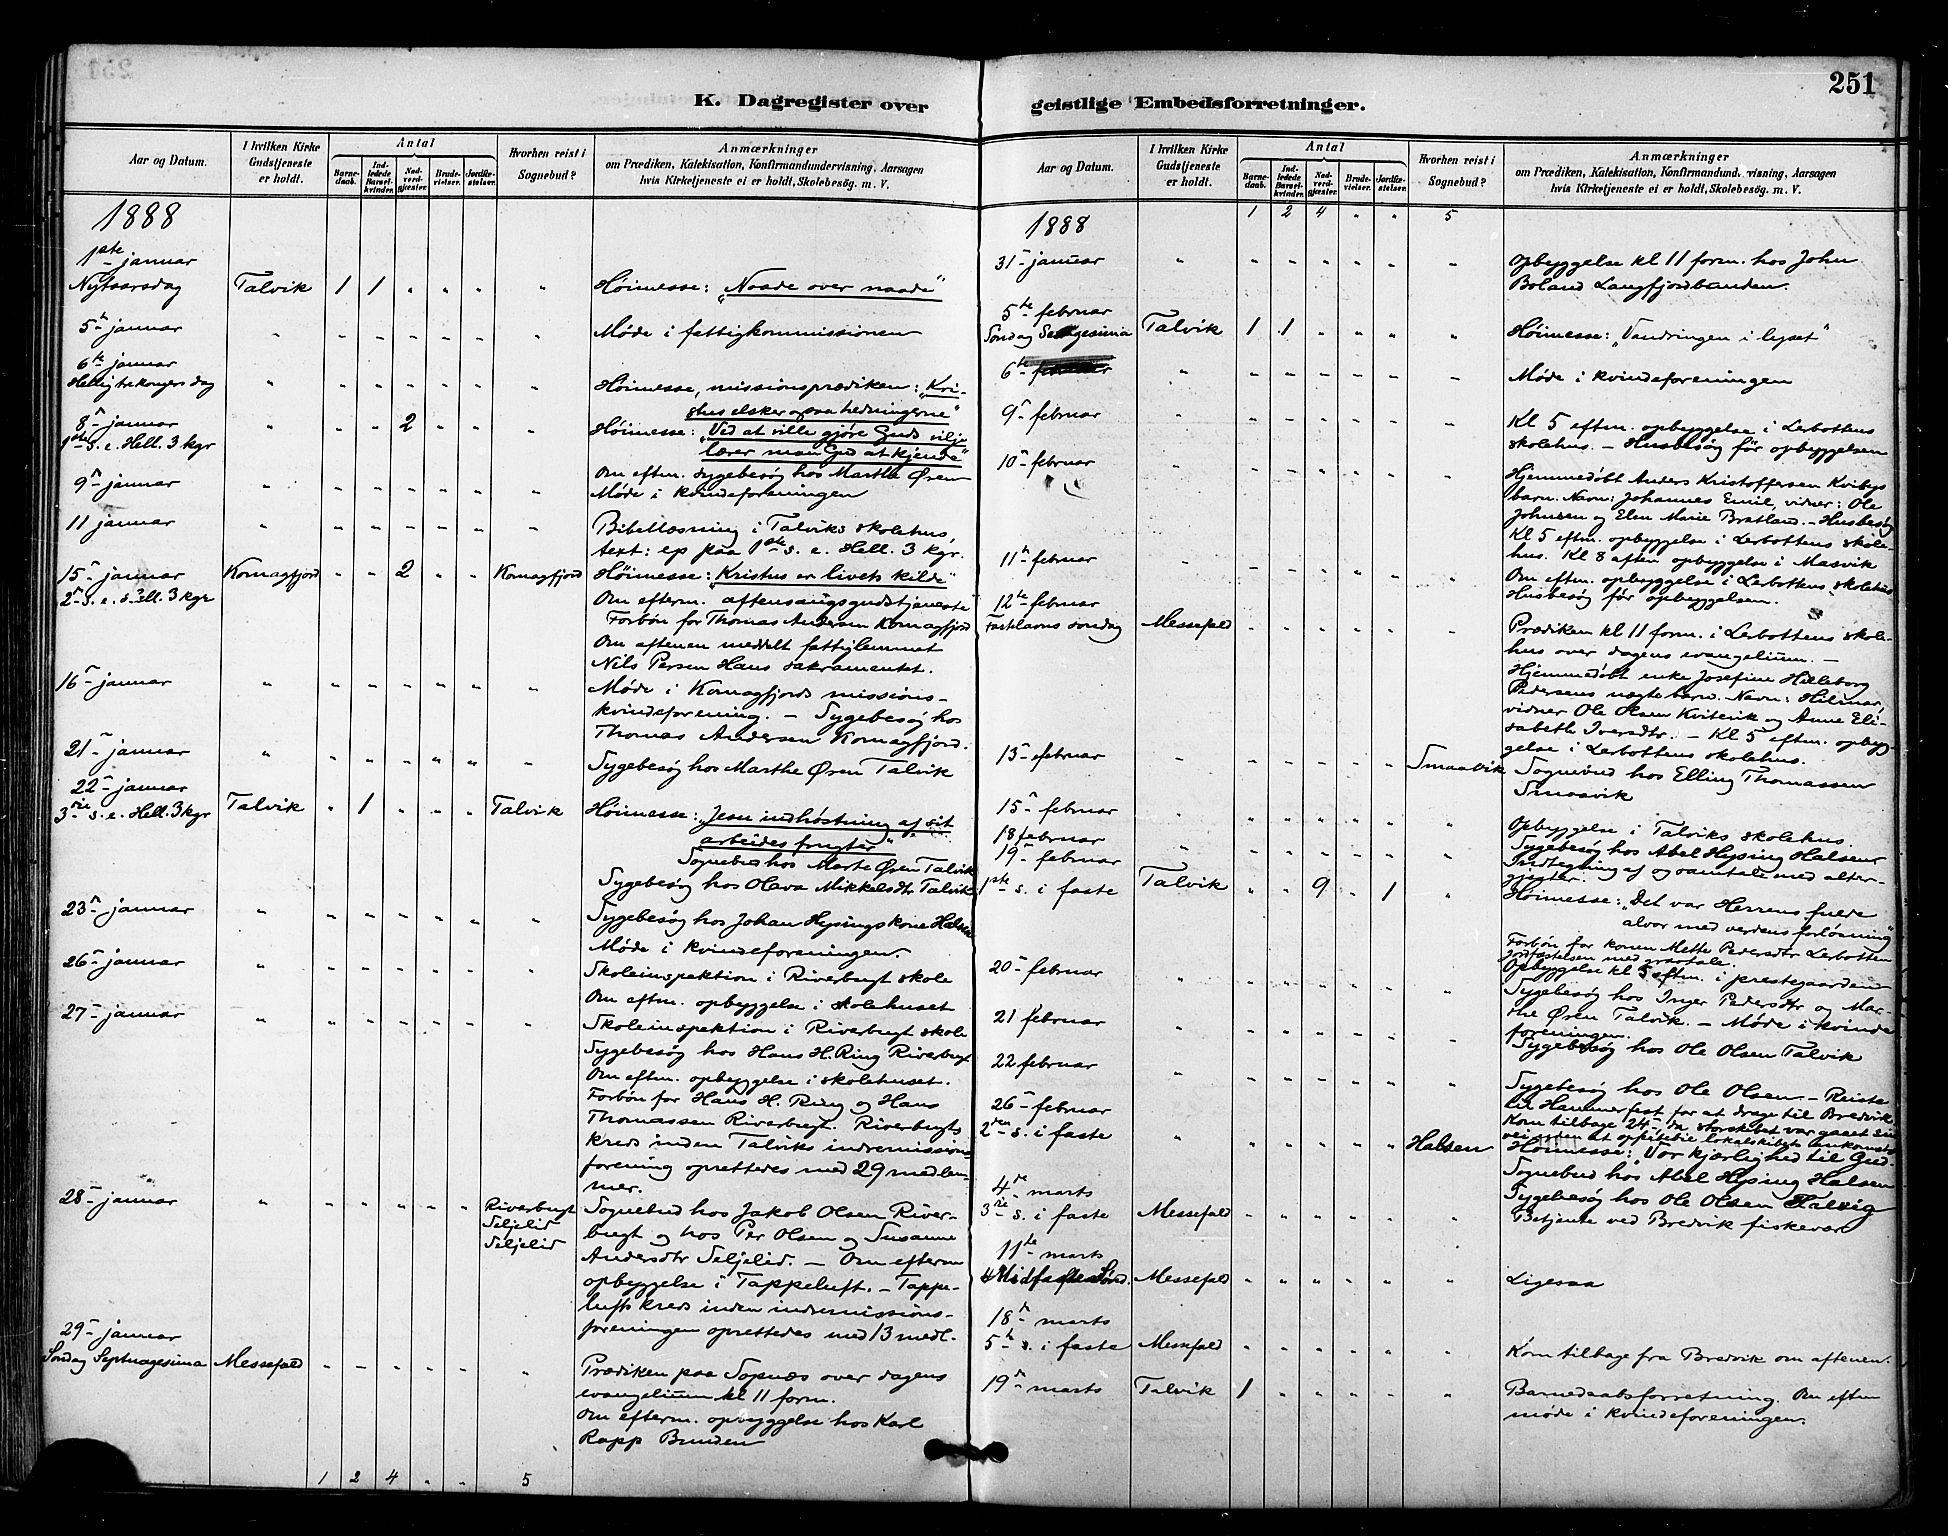 251
K. Dagregister over
Aar og Datum.
I hvilken Kirke Gudstjeneste er holdt.
Antal
Barnedaab.
Indledede Barselkvinder.
Nadverdgjester.
Brudevielser.
Jordfæstelser.
Hvorhen reist i Sognebud?
Anmærkninger
om Prædiken, Katekisation, Konfirmandundervisning, Aarsagen
hvis Kirketjeneste ei er holdt, Skolebesøg. m. V.
1888
1ste januar
Nytaarsdag Talvik 1 1 " " " " Höimesse: "Naade over naade"
5te januar " " " " " " " Møde i fattigkommissionen
6te januar
Hellig tre kongers dag " " " " " " " Höimesse, missionsprædiken: "Kri-
stus elsker ogsaa hedningerne"
8de januar " " " 2 " " " Höimesse: "Ved at ville gjöre Guds vilje
1ste s. e. Hell. 3 kgr lærer man Gud at kjende"
Om eftm. sygebesøg hos Marthe Øren
9de januar " " " " " " " Møde i kvindeforeningen
11 januar " " " " " " " Bibellæsning i Talviks skolehus,
text: ep paa 1ste s. e. Hell. 3 kgr.
15de januar Komagfjord " " 2 " " Komagfjord Höimesse: "Kristus er livets kilde"
2den s. e. Hell. 3 kgr
Om efterm. aftensangsgudstjeneste
Forbön for Thomas Andersen Komagfjord
Om aftenen meddelt fattiglemmet
Nils Persen Hans sakramentet.
16de januar " " " " " " " Møde i Komagfjords missions-
kvindeforening. – Sygebesøg hos
Thomas Andersen Komagfjord.
21de januar " " " " " " " Sygebesøg hos Marthe Øren Talvik
22de januar
3die s. e. Hell. 3 kgr Talvik " 1 " " " Talvik Höimesse: "Jesu indhøstning af sit
arbeides frugter"
Sognebud hos Marte Øren Talvik
Sygebesøg hos Olava Mikkelsdtr Talvik
23de januar " " " " " " " Sygebesøg hos Johan Hysings kone Halsen
Møde i kvindeforeningen.
26de januar " " " " " " " Skoleinspektion i Riverbugt skole
Om eftm. opbyggelse i skolehuset
27de januar " " " " " " " Skoleinspektion i Riverbugt skole
Sygebesøg hos Hans H. Ring Riverbugt
Om eftm. opbyggelse i skolehuset.
Forbön for Hans H. Ring og Hans
Thomassen Riverbugt. Riverbugts
kreds inden Talviks indremissions-
forening oprettedes med 29 medlem-
mer.
28de januar " " " " " " Riverbugt Sognebud hos Jakob Olsen River-
Seljelid bugt og hos Per Olsen og Susanne
Seljelid Andersdtr Seljelid. – Om efterm
opbyggelse i Tappeluft. – Tappe-
lufts kreds inden indremissions-
foreningen oprettedes med 13 medl.
29de januar
Søndag Septuagesima Messefald " " " " " " Prædiken paa Sopnæs over dagens
evangelium kl 11 form.
Om efterm. opbyggelse hos Karl
Rapp Bunden
1 2 4 " " 5
geistlige Embedsforretninger.
Aar og Datum.
I hvilken Kirke Gudstjeneste er holdt.
Antal
Barnedaab.
Indledede Barselkvinder.
Nadverdgjester.
Brudevielser.
Jordfæstelser.
Hvorhen reist i Sognebud?
Anmærkninger
om Prædiken, Katekisation, Konfirmandund. visning, Aarsagen
hvis Kirketjeneste ei er holdt, Skolebesøg. m. V.
1888 1 2 4 " " 5
31te januar " " " " " " " Opbyggelse kl 11 form. hos John
Boland Langfjordbunden.
5te februar
Søndag Sexagesima Talvik 1 1 " " " " Höimesse: "Vandringen i lyset"
6te februar " " " " " " " Møde i kvindeforeningen
9de februar " " " " " " " Kl 5 eftm. opbyggelse i Lerbottens
skolehus. – Husbesøg før opbyggelsen
10de februar " " " " " " " Hjemmedøbt Anders Kristoffersen Kvibys
barn. Navn: Johannes Emil, vidner: Ole
Johnsen og Elen Marie Bratland. – Husbesøg
Kl 5 eftm. opbyggelse i Lerbottens skole-
hus. Kl 8 aften opbyggelse i Masvik
11te februar " " " " " " " Om eftm. opbyggelse i Lerbottens skolehus
Husbesøg før opbyggelsen.
12te februar
Fastelavns søndag Messefald " " " " " " Prædiken kl 11 form. i Lerbottens skole-
hus over dagens evangelium. –
Hjemmedøbt enke Josefine Hilleborg
Pedersens uægte barn. Navn: Hilmar,
vidner Ole Olsen Kvitvik og Anne Eli-
sabeth Iversdtr. – Kl 5 eftm. opbyg-
gelse i Lerbottens skolehus.
13de februar " " " " " " Smaavik Sognebud hos Elling Thomassen
Smaavik
15de februar " " " " " " " Opbyggelse i Talviks skolehus.
18 februar " " " " " " " Sygebesøg hos Abel Hysing Halsen
Indtegning af og samtale med alter-
gjester.
19de februar
1ste s. i faste Talvik " " 9 " 1 " Höimesse: "Det var Herrens fulde
alvor med verdens forløsning"
Forbön for konen Mette Pedersdtr Lerbotten
Jordfæstelsen med gravtale.
20de februar " " " " " " " Opbyggelse kl 5 eftm. i prestegaarden
Sygebesøg hos Inger Pedersdtr og Mar-
the Øren Talvik. – Møde i kvinde
foreningen.
21 februar " " " " " " " Sygebesøg hos Ole Olsen Talvik
22 februar " " " " " " " Sygebesøg hos Ole Olsen – Reiste
til Hammerfest for at drage til Bredvik
Kom tilbage 24de, da storskibet var gaaet sin
vei at opsitebie lokalskibets ankomst
26de februar
2den s. i faste " " " " " " Halsen Höimesse: "Vor kjærlighed til Gud.
Sognebud hos Abel Hysing Halsen
Sygebesøg hos Ole Olsen Talvig
4de marts
3die s. i faste Messefald " " " " " " Betjente ved Bredvik fiskevær
11te marts
4 Midfaste Sønd. Messefald " " " " " " Ligesaa
18de marts
5te s. i faste Messefald " " " " " " Kom tilbage fra Bredvik om aftenen.
19de marts Talvik 1 " " " " " Barnedaabsforretning. Om eftm
møde i kvindeforeningen.